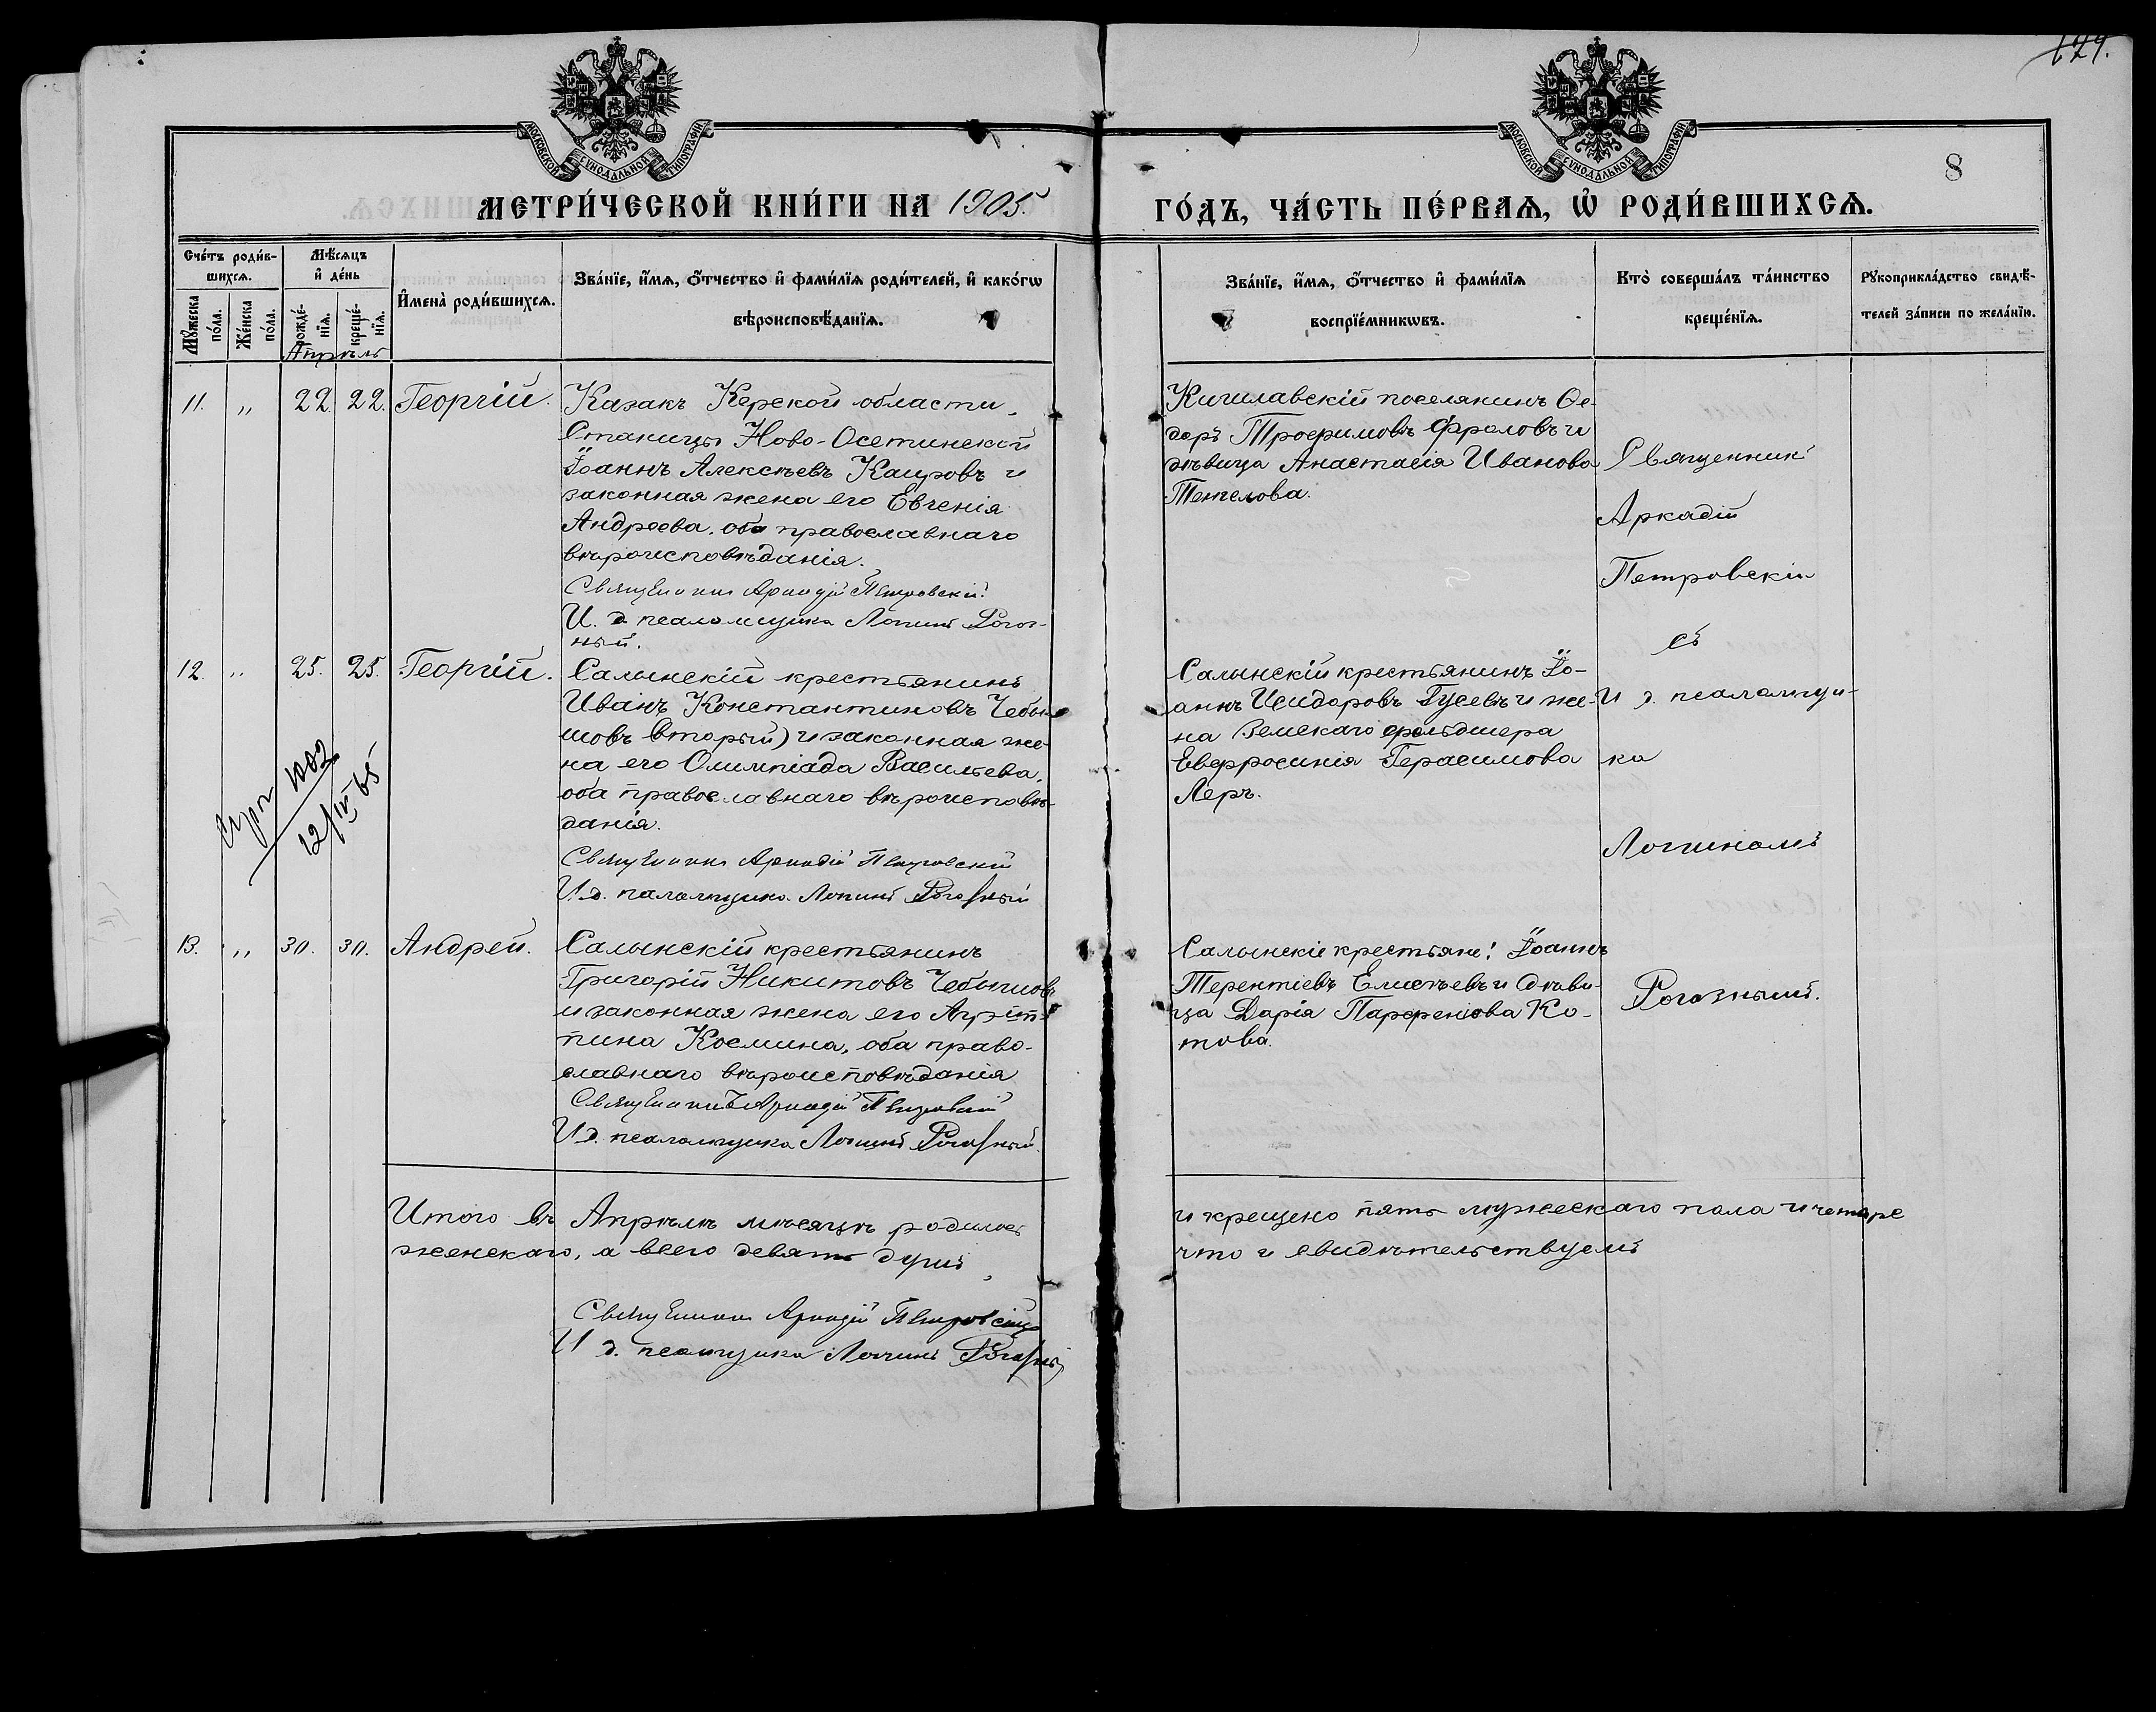 129.
МОСКОВСКОЙ СУНОДАЛЬНОЙ ТИПОГРАФІИ
МОСКОВСКОЙ СУНОДАЛЬНОЙ ТИПОГРАФІИ
8
МЕТРИ́ЧЕСКОЙ КНИ́ГИ НА 1905.
ГО́ДЪ, ЧА́СТЬ ПЕ́РВАѦ, Ѡ҆ РОДИ́ВШИХСѦ.
Сче́тъ роди́в-
шихсѧ.
Мѣ́сѧцъ
и҆ де́нь
Мꙋ́жеска
по́ла.
Же́нска
по́ла.
рожде́-
нїѧ.
креще́-
нїѧ.
И҆мена̀ роди́вшихсѧ.
Зва́нїе, и҆́мѧ, ѻ҆́тчество и҆ фами́лїѧ роди́телей, и҆ како́гѡ
вѣроисповѣ́данїѧ.
Зва́нїе, и҆́мѧ, ѻ҆́тчество и҆ фами́лїѧ
воспрїе́мникѡвъ.
Кто̀ соверша́лъ та́инство
креще́нїѧ.
Рꙋкоприкла́дство свидѣ́-
телей за́писи по жела́нїю.
Апрѣль
11. " 22. 22. Георгій.
Казакъ Керской области,
Станицы Ново-Осетинской
Іоаннъ Алексѣевъ Каировъ и
законная жена его Евгенія
Андреева, оба православнаго
вѣроисповѣданія.
Священникъ Аркадій Петровскій.
И. д. псаломщика Логинъ Рогоз-
ный.
Кигилавскій поселянинъ Ѳе-
доръ Трофимовъ Фроловъ и
дѣвица Анастасія Иванова
12. " 25. 25. Георгій.
Салынскій крестьянинъ
Иванъ Константиновъ Чебы-
шовъ второй) и законная же-
на его Олимпіада Васильева,
оба православнаго вѣроисповѣ-
данія.
Священникъ Аркадій Петровскій
И. д. псаломщика Логинъ Рогозный
1002
12/IV 65
Салынскій крестьянинъ Іо-
аннъ Исидоровъ Гусевъ и же-
на Земскаго фельдшера
Евфросинія Герасимова
Леръ.
13. " 30. 30. Андрей.
Салынскій крестьянинъ
Григорій Никитовъ Чебышовъ
и законная жена его Агрип-
пина Космина, оба право-
славнаго вѣроисповѣданія
Священникъ Аркадій Петровскій
И. д. псаломщика Логинъ Рогозный.
Салынскіе крестьяне: Іоаннъ
Терентіевъ Елисѣевъ и дѣви-
ца Дарія Парфеніова Ко-
това.
Священникъ
Аркадій
Петровскій
съ
И д. псаломщи-
ка
Логиномъ
Рогознымъ.
Итого въ Апрѣлѣ мѣсяцѣ родилось
и крещено пять мужескаго пола и четыре
женскаго, а всего девять душъ,
что и свидѣтельствуемъ
Священникъ Аркадій Петровскій
И д. псаломщика Логинъ Рогозный